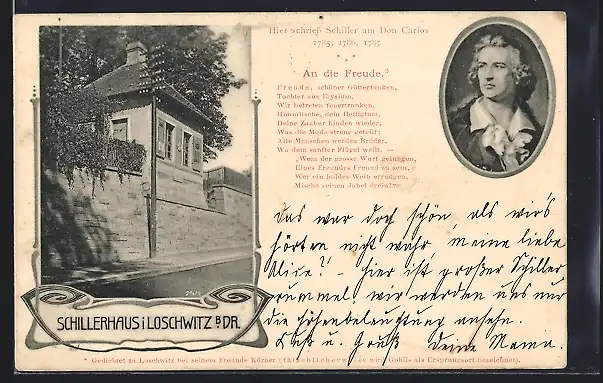 Hier schrieb Schiller am Don Carlos
1785, 1786, 1787
An die Freude.*
Freude, schöner Götterfunken,
Tochter aus Elysium,
Wir betreten feuertrunken,
Himmlische, dein Heiligtum,
Deine Zauber binden wieder,
Was die Mode streng geteilt;
Alle Menschen werden Brüder,
Wo dein sanfter Flügel weilt. —
„Wem der grosse Wurf gelungen,
Eines Freundes Freund zu sein,
Wer ein holdes Weib errungen,
Mische seinen Jubel drein!"
Das war doch schön, als wir's
hörten nicht wahr, meine liebe
Alice? – Hier ist großer Schiller
rummel, wir werden uns nur
die Höhenbeleuchtung ansehn.
Kuß u. Gruß Deine Mama.
SCHILLERHAUS i LOSCHWITZ B. DR.
* Gedichtet zu Loschwitz bei seinem Freunde Körner (fälschlicherweise wird Gohlis als Ursprungsort bezeichnet).